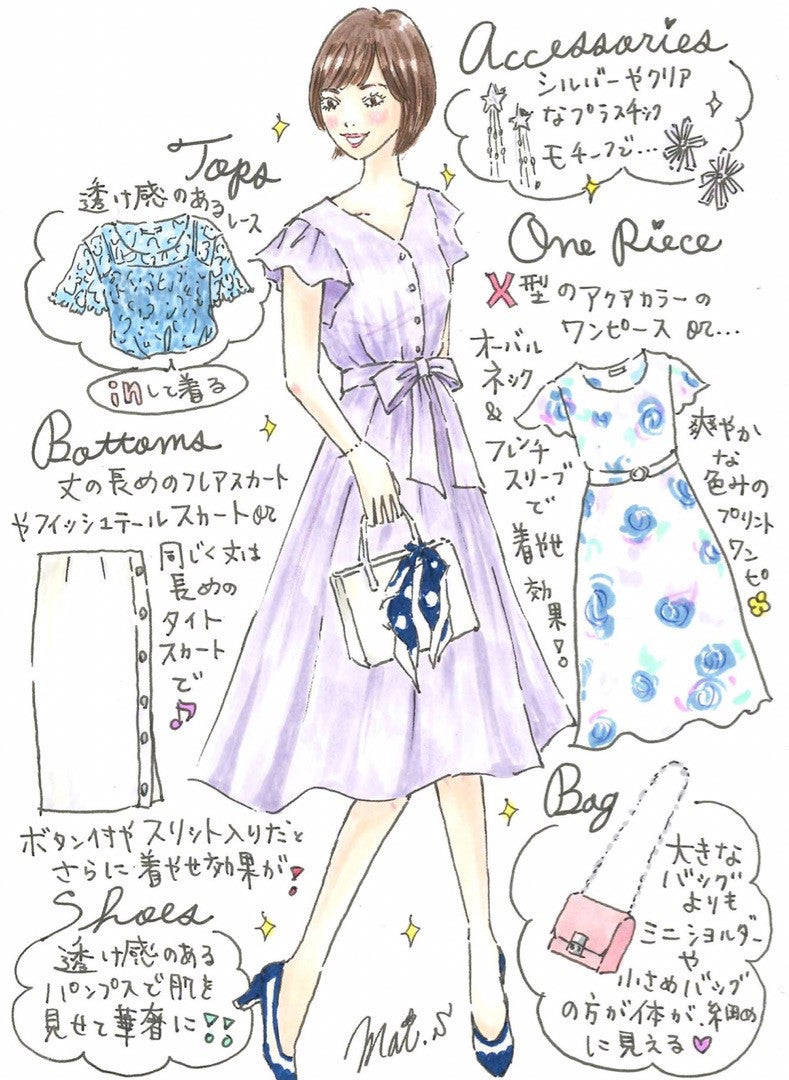 Accessories
シルバーやクリア
なプラスチック
モチーフで…
Tops
透け感のある
レース
inして着る
One Piece
X型のアクアカラーの
ワンピース or…
オーバル
ネック
&
フレンチ
スリーブ
で
着やせ
効果!。
爽やか
な
色みの
プリント
ワンピ
Bottoms
丈の長めのフレアスカート
やフィッシュテールスカート or
同じく丈は
長めの
タイト
スカート
で♪
ボタン付やスリット入りだと
さらに着やせ効果が!
Shoes
透け感のある
パンプスで肌を
見せて華奢に!!
Bag
大きな
バッグ
よりも
ミニショルダー
や
小さめバッグ
の方が体が細め
に見える♥
Mai.N